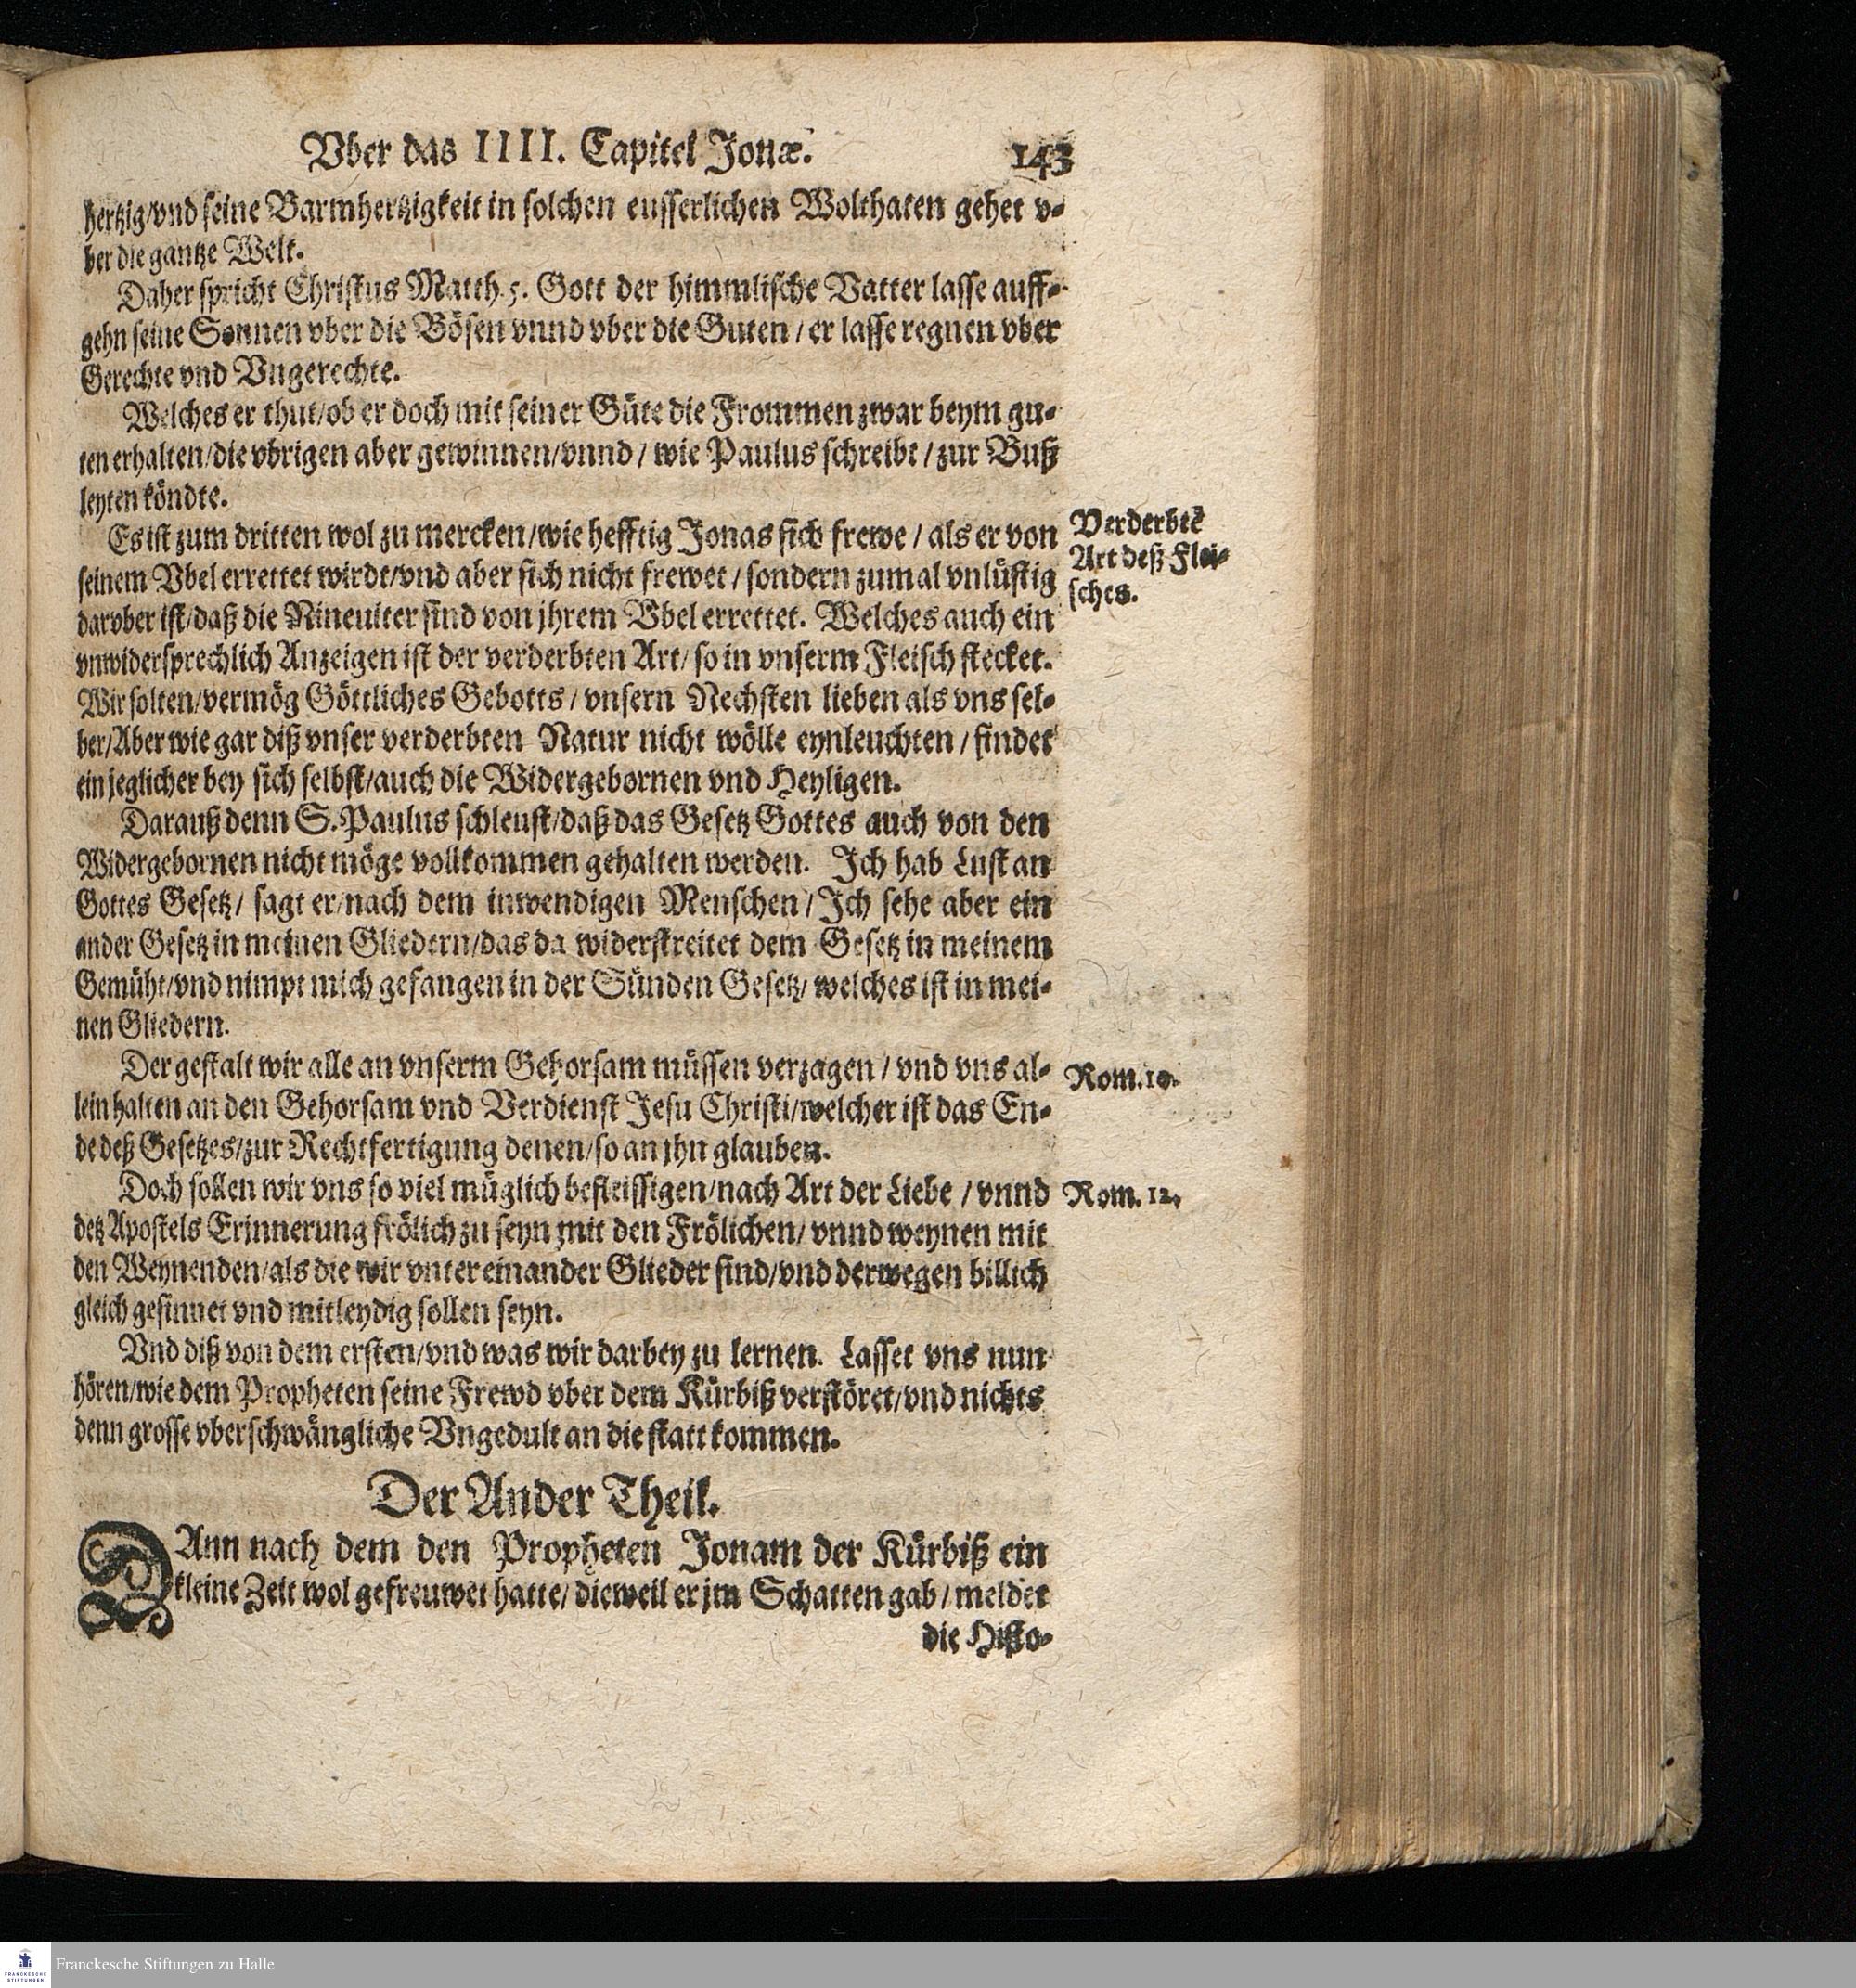 Vber das IIII. Capitel Jonæ. 143
hertzig/vnd seine Barmhertzigkeit in solchen eusserlichen Wolthaten gehet v-
ber die gantze Welt.
Daher spricht Christus Matth. 5. Gott der himmlische Vatter lasse auff-
gehn seine Sonnen vber die Bösen vnnd vber die Guten / er lasse regnen vber
Gerechte vnd Vngerechte.
Welches er thut/ob er doch mit seiner Güte die Frommen zwar beym gu-
ten erhalten/die vbrigen aber gewinnen/vnnd / wie Paulus schreibt / zur Buß
leyten köndte.
Es ist zum dritten wol zu mercken/wie hefftig Jonas sich frewe / als er von
seinem Vbel errettet wirdt/vnd aber sich nicht frewet / sondern zumal vnlüstig
darvber ist/daß die Nineuiter sind von jhrem Vbel errettet. Welches auch ein
vnwidersprechlich Anzeigen ist der verderbten Art/ so in vnserm Fleisch stecket.
Wir solten/vermög Göttliches Gebotts / vnsern Nechsten lieben als vns sel-
ber/Aber wie gar diß vnser verderbten Natur nicht wölle eynleuchten / findet
ein jeglicher bey sich selbst/auch die Widergebornen vnd Heyligen.
Verderbtě
Art deß Flei-
sches.
Darauß denn S. Paulus schleust/daß das Gesetz Gottes auch von den
Widergebornen nicht möge vollkommen gehalten werden. Ich hab Lust an
Gottes Gesetz/ sagt er/nach dem inwendigen Menschen / Ich sehe aber ein
ander Gesetz in meinen Gliedern/das da widerstreitet dem Gesetz in meinem
Gemüht/vnd nimpt mich gefangen in der Sünden Gesetz/ welches ist in mei-
nen Gliedern.
Der gestalt wir alle an vnserm Gehorsam müssen verzagen / vnd vns al-
lein halten an den Gehorsam vnd Verdienst Jesu Christi/welcher ist das En-
de deß Gesetzes/zur Rechtfertigung denen/so an jhn glauben.
Rom. 10.
Doch sollen wir vns so viel müglich befleissigen/nach Art der Liebe / vnnd
detz Apostels Erjnnerung frölich zu seyn mit den Frölichen/ vnnd weynen mit
den Weynenden/als die wir vnter einander Glieder sind/vnd derwegen billich
gleich gesinnet vnd mitleydig sollen seyn.
Rom. 12.
Vnd diß von dem ersten/vnd was wir darbey zu lernen. Lasset vns nun
hören/wie dem Propheten seine Frewd vber dem Kürbiß verstöret/vnd nichts
denn grosse vberschwängliche Vngedult an die statt kommen.
Der Ander Theil.
DAnn nach dem den Propheten Jonam der Kürbiß ein
kleine Zeit wol gefreuwet hatte/ dieweil er jm Schatten gab / meldet
die Histo-
Franckesche Stiftungen zu Halle
FRANCKESCHE
STIFTUNGEN